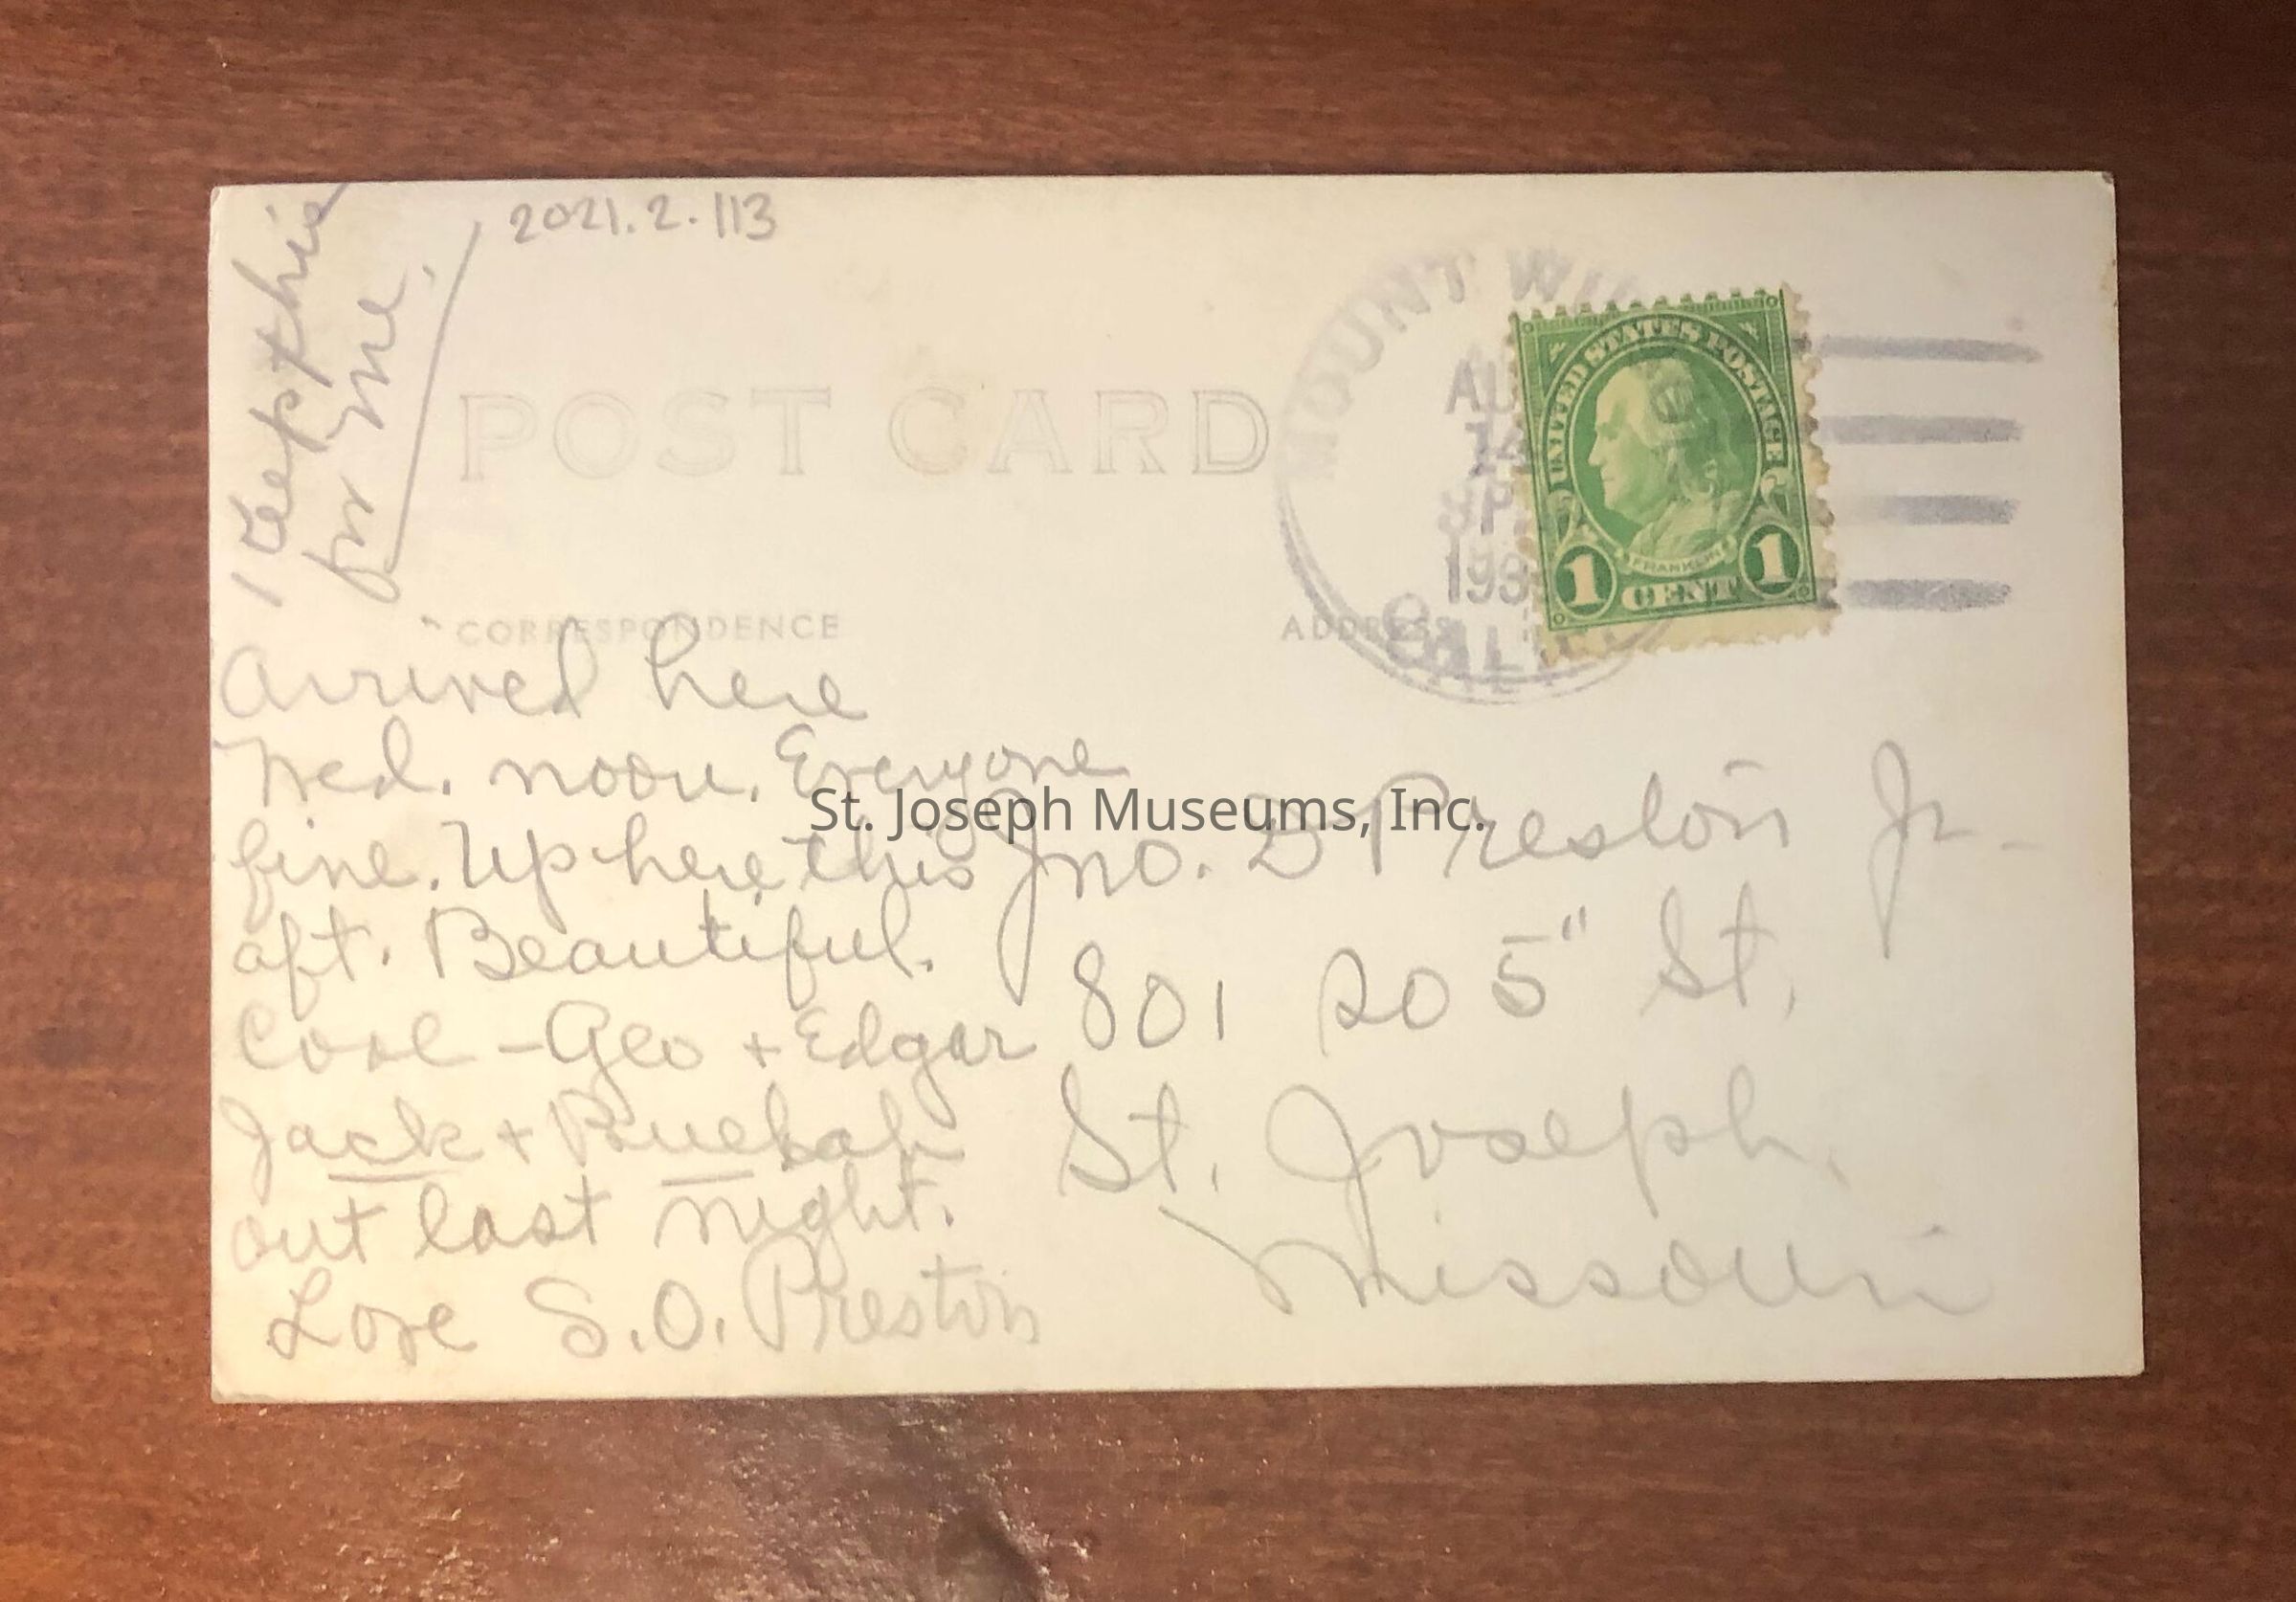 Keep this
for me.
2021.2.113
POST CARD
MOUNT WIL
AU
14
PM
193
CALIF
UNITED STATES POSTAGE
FRANKLIN
1 CENT 1
CORRESPONDENCE
ADDRESS
Arrived here
Wed. noon. Everyone
fine. Up here this
aft. Beautiful.
Cool - Geo + Edgar
Jack +
out last night.
Love S.O. Preston
St. Joseph Museums, Inc.
Jno. D Preston Jr.
801 So 5" St.
St. Joseph,
Missouri